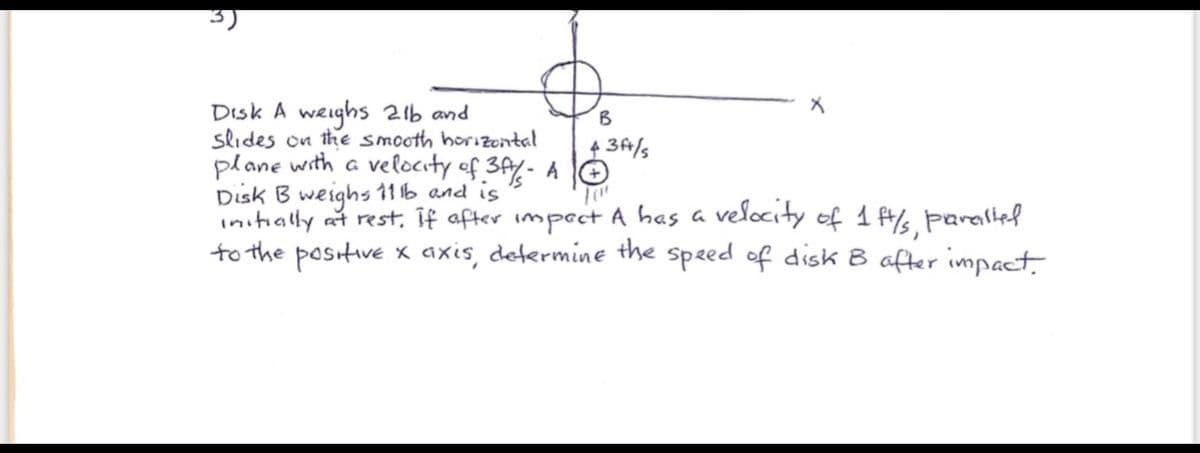 3)
X
B
Disk A weighs 2lb and
slides on the smooth horizontal
4 3ft/s
plane with a velocity of 3ft/s - A
Disk B weighs 11lb and is
initially at rest. If after impact A has a velocity of 1 ft/s, parallel
to the positive x axis, determine the speed of disk B after impact.